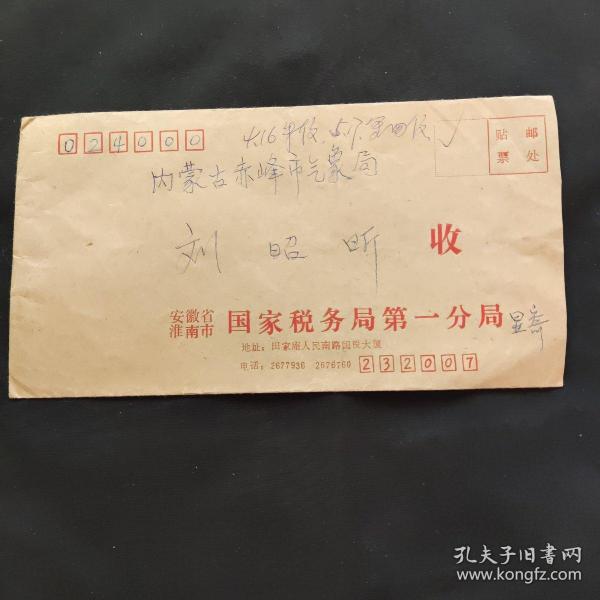 024000
4.16收
贴邮
票处
内蒙古赤峰市气象局
刘昭昕 收
安徽省
淮南市
国家税务局第一分局
地址：田家庵人民南路国税大厦
电话：2677936 2676760
232007
孔夫子旧书网
www.kongfz.com